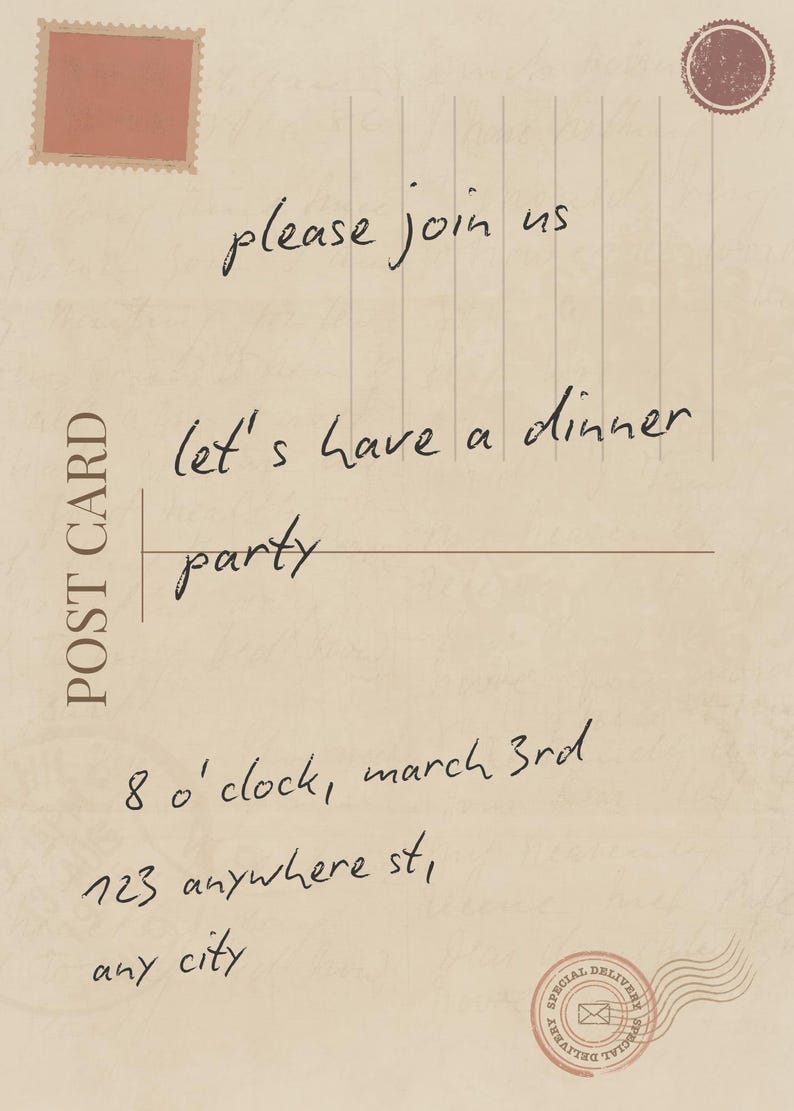 please join us
let's have a dinner
party
POST CARD
8 o'clock, march 3rd
123 anywhere st,
any city
SPECIAL DELIVERY
SPECIAL DELIVERY